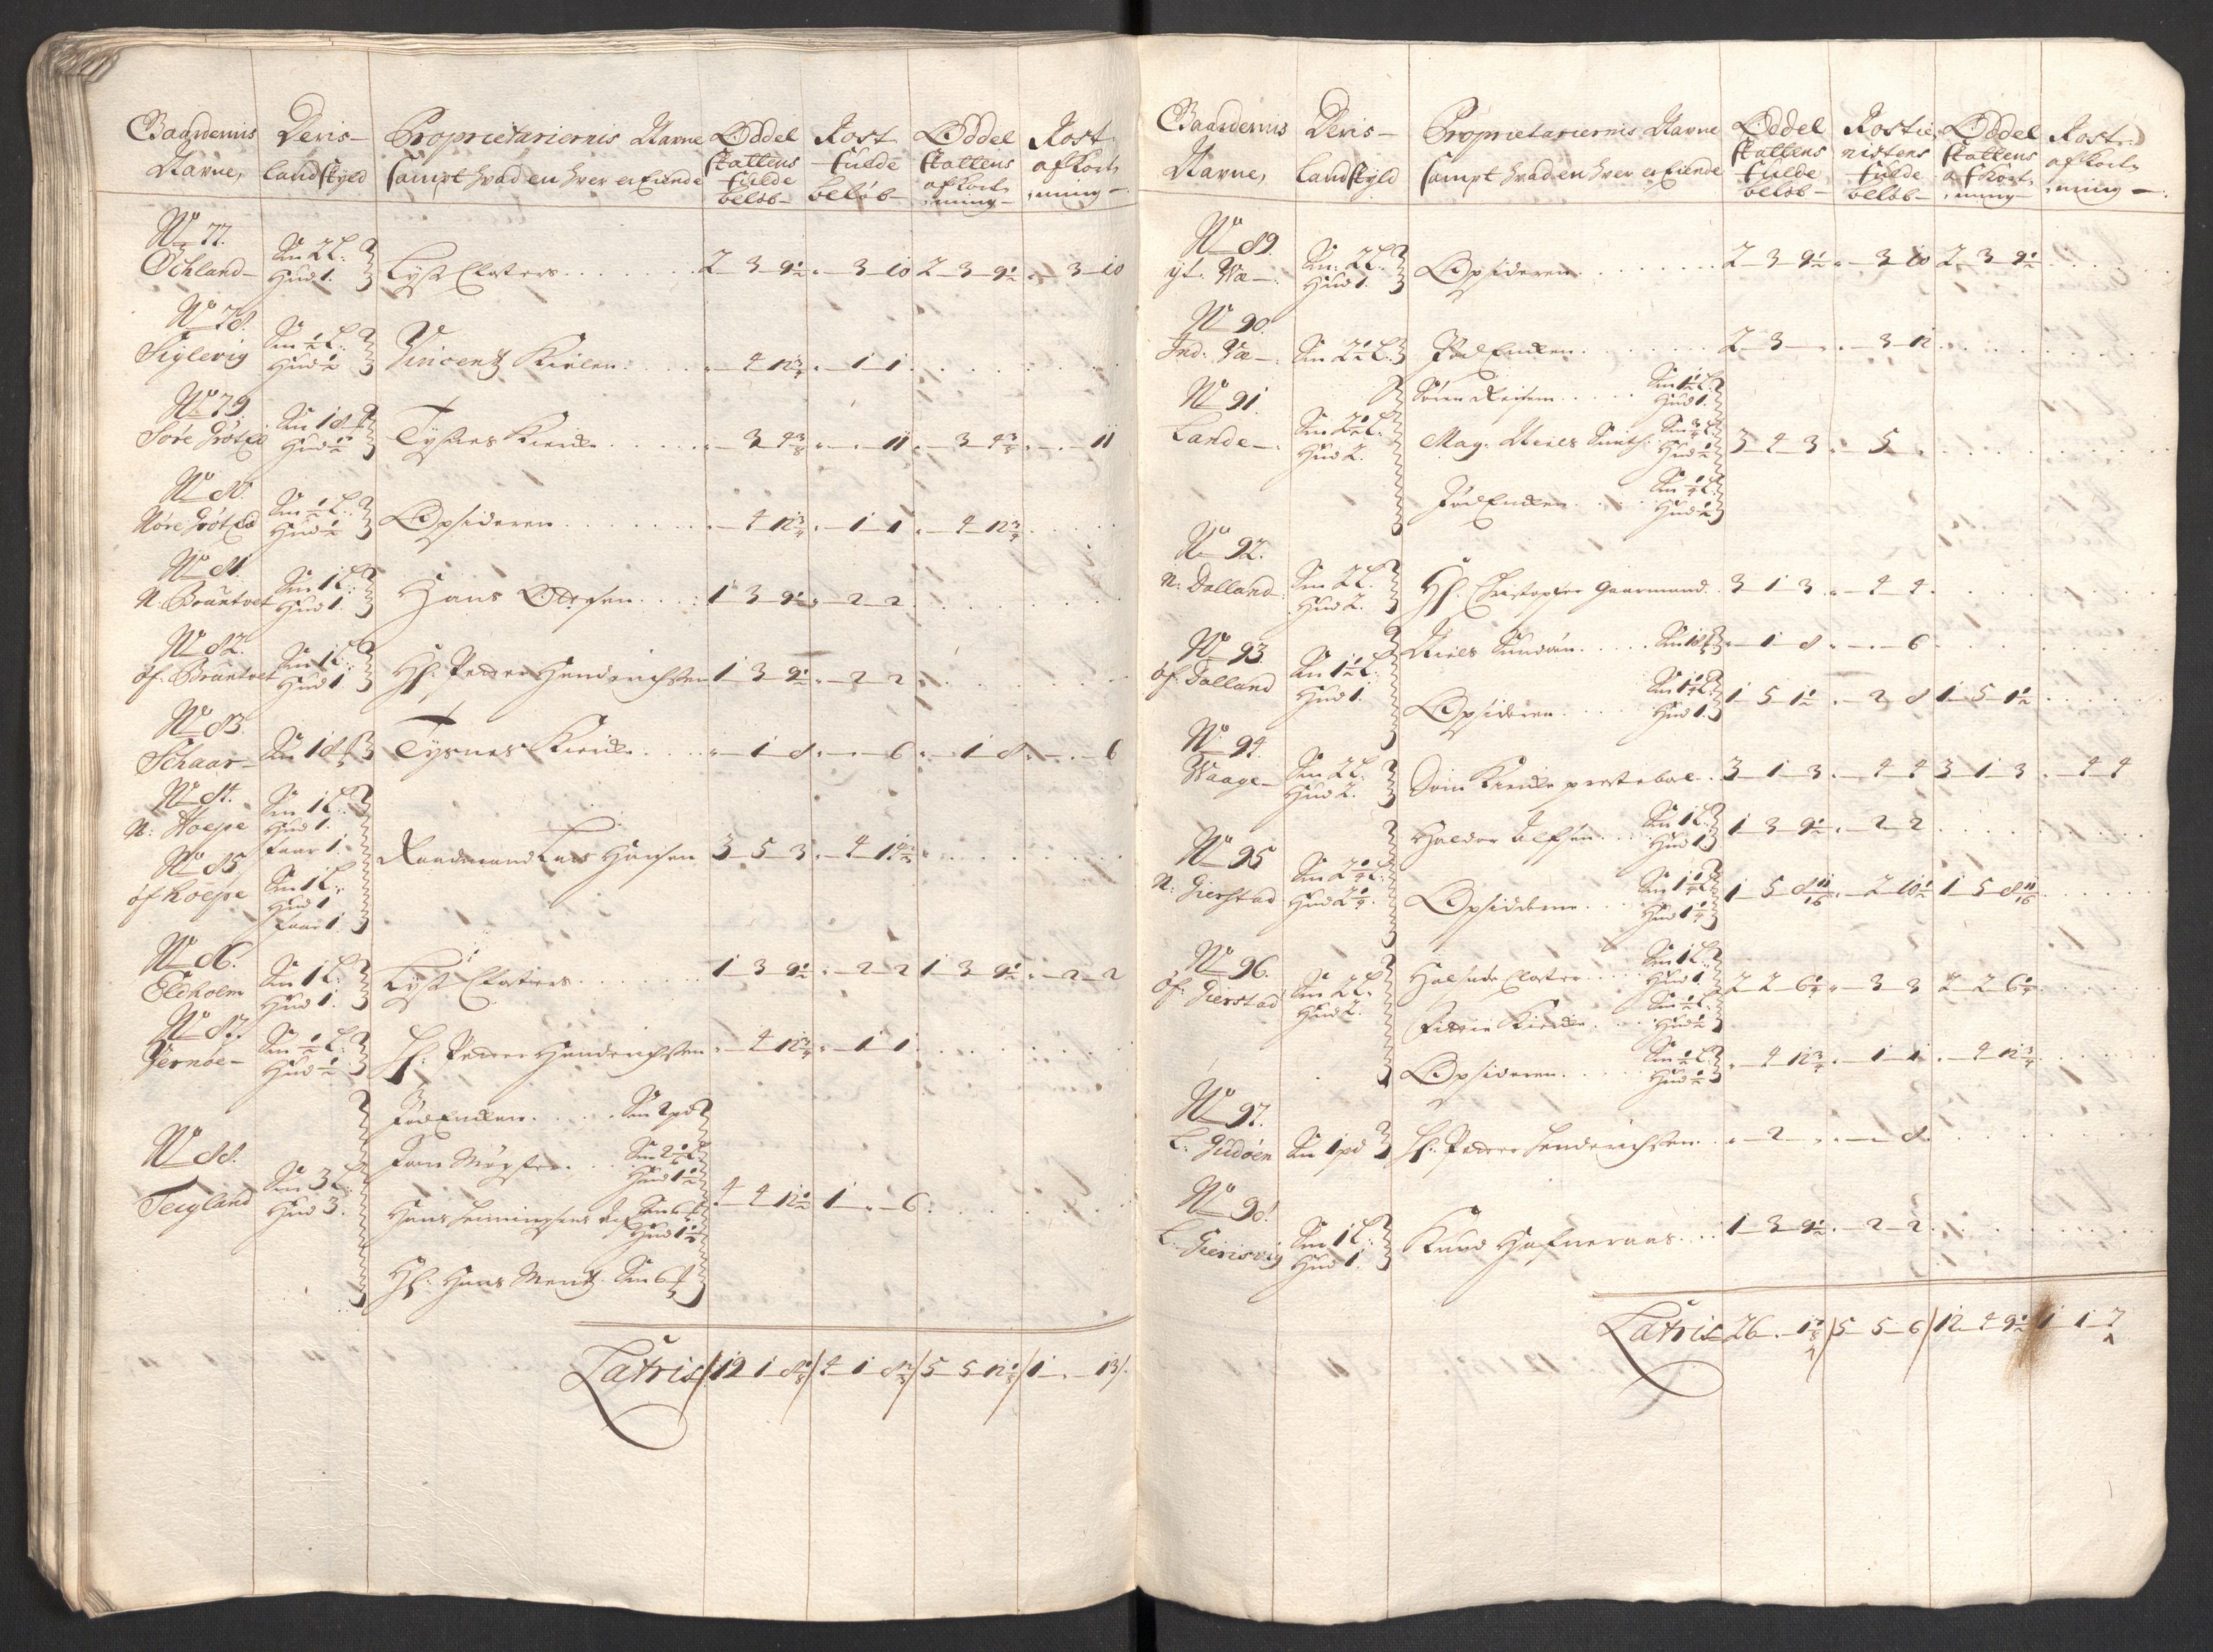 Gaardernis Navne,
Deris Landskyld
Proprietariernis Navne sampt hvad en hver er Eiende
Oddel skattens fulde beløb
Rost fulde beløb
Oddel skattens afkortning
Rost afkortning
No 77.
Øchland Sm 2 L: Hud 1. Lysf Closters . . . 2 - 3 - 9½ - 3 - 10 2 - 3 - 9½ - 3 - 10
No 78.
Siglevig Sm ½ L: Hud ½ Vincentz . . . - 4 - 12¾ - 1 - 1
No 79.
Søre Hud ½ Tysnes Kircke . . . - 3 - 4⅜ - - 11 - 3 - 4⅜ - - 11
No 80.
Nøre Sm ½ L: Hud ½ Opsideren . . . - 4 - 12¾ - 1 - 1 - 4 - 12¾
No 81.
N: Bruntvet Sm 1 L: Hud 1. Hans . . . 1 - 3 - 9½ - 2 - 2
No 82.
øf. Bruntvet Sm 1 L: Hud 1 Hr. Peder Hendrichsen 1 - 3 - 9½ - 2 - 2
No 83.
Schaar Sm 18 Tysnes Kircke . . . - 1 - 8 - - 6 - 1 - 8 - - 6
No 84.
N: Hoepe Sm 1 L: Hud 1. Faar 1.
Raadmand Lars Hansen 3 - 5 - 3 - 4
No 85.
øf Hoepe Sm 1 L: Hud 1 Faar 1.
No 86.
Eldholm Sm 1 L: Hud 1. Lysf Closters . . . 1 - 3 - 9½ - 2 - 2 1 - 3 - 9½ - 2 - 2
No 87.
Giernøe Sm ½ L: Hud ½ Hr. Peder Hendrichsen - 4 - 12¾ - 1 - 1
No 88.
Teigland Sm 3 L: Hud 3.
Jød Encken . . . Sm 2 pd
Hud 1½
Hans Sm 6 Hud 1½ 4 - 4 - 12½ 1 - - 6
Hr. Hans Mentz. Sm 6
Latris 12 1 4 - 1 5 - 5 1 - - 13
Gaardernis Navne,
Deris Landskyld
Proprietariernis Navne sampt hvad en hver er Eiende
Oddel skattens fulde beløb
Rostie nistens fulde beløb
Oddel skattens afkortning
Rost afkortning
No 89.
yt. Væ Sm. 2 L: Hud 1. Opsideren . . . 2 - 3 - 9½ - 3 - 10 2 - 3 - 9½
No 90.
Ind: Væ Sm 2½ L: Jød Encken . . . 2 - 3 - - 3 - 12
No 91.
Lande Sm 2½ L: Hud 2.
Søren . . . Sm 1½ L: Hud 1.
Mag. Niels Smith: Sm ¾ L Hud ½ 3 - 4 - 3 - 5
Jød Encken . . . Sm ¼ L: Hud ½
No 92.
N: Dalland Sm 2 L: Hud 2. Hr. Christopher Gaarmand. 3 - 1 - 3 - 4 - 4
No 93.
øf. Dalland Sm 1½ L: Hud 1.
Niels . . . Sm 18 - 1 - 8 - - 6
Opsideren . . . Sm 1¼ L: Hud 1. 1 - 5 - 1½ - 2 - 8 1 - 5 - 1½
No 94.
Waage Sm 2 L: Hud 2. Kircke prestebol . 3 - 1 - 3 - 4 - 4 3 - 1 - 3 - 4 - 4
No 95
N: Gierstad Sm 2¼ L: Hud 2¼.
Haldor . . . Sm 1 L: Hud 1. 1 - 3 - 9½ - 2 - 2
Opsiderne . . . Sm 1¼ L Hud 1¼ 1 - 5 - 8 11/16 - 2 - 10½ 1 - 5 - 8 11/16
No 96.
øf: Gierstad Sm 2 L: Hud 2.
Closter . . . Sm 1 L: Hud 1 2 - 2 - 6¼ - 3 - 3 2 - 2 - 6¼
Kircke . . . Sm ½ L. Hud ½
Opsideren . . . Sm ½ L Hud ½ - 4 - 12¾ - 1 - 1 - 4 - 12¾
No 97.
L: Gudøen Sm 1 pd Hr. Peder Hendrichsen . . - 2 - - - 8
No 98.
L: Giersvig Sm 1 L: Hud 1. Knud . . . 1 - 3 - 9½ - 2 - 2
Latris 26 - 5 - 5 - 6 12 - 4 - 9½ 1 - 1 - 7